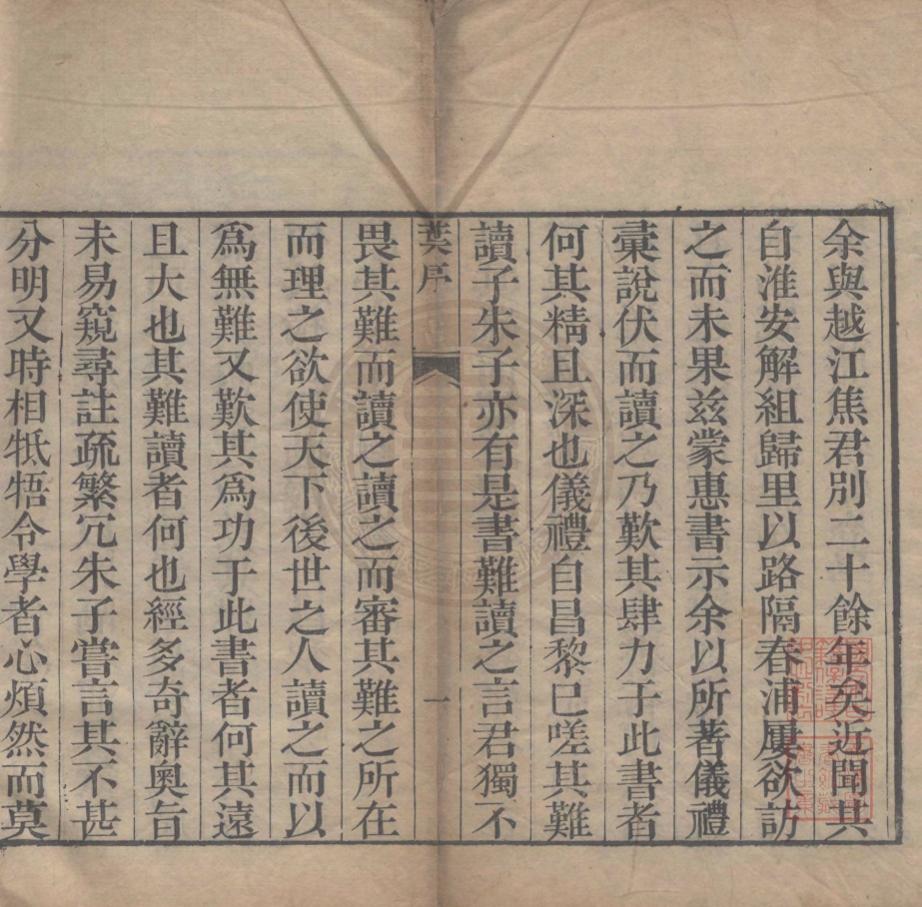 余與越江焦君別二十餘年矣近聞其
自淮安解組歸里以路隔春浦屢欲訪
之而未果兹蒙惠書示余以所著儀禮
彙說伏而讀之乃歎其肆力于此書者
何其精且深也儀禮自昌黎已嗟其難
讀子朱子亦有是書難讀之言君獨不
葉序
一
畏其難而讀之讀之而審其難之所在
而理之欲使天下後世之人讀之而以
爲無難又歎其爲功于此書者何其遠
且大也其難讀者何也經多奇辭奧旨
未易窺尋註疏繁冗朱子嘗言其不甚
分明又時相牴牾令學者心煩然而莫